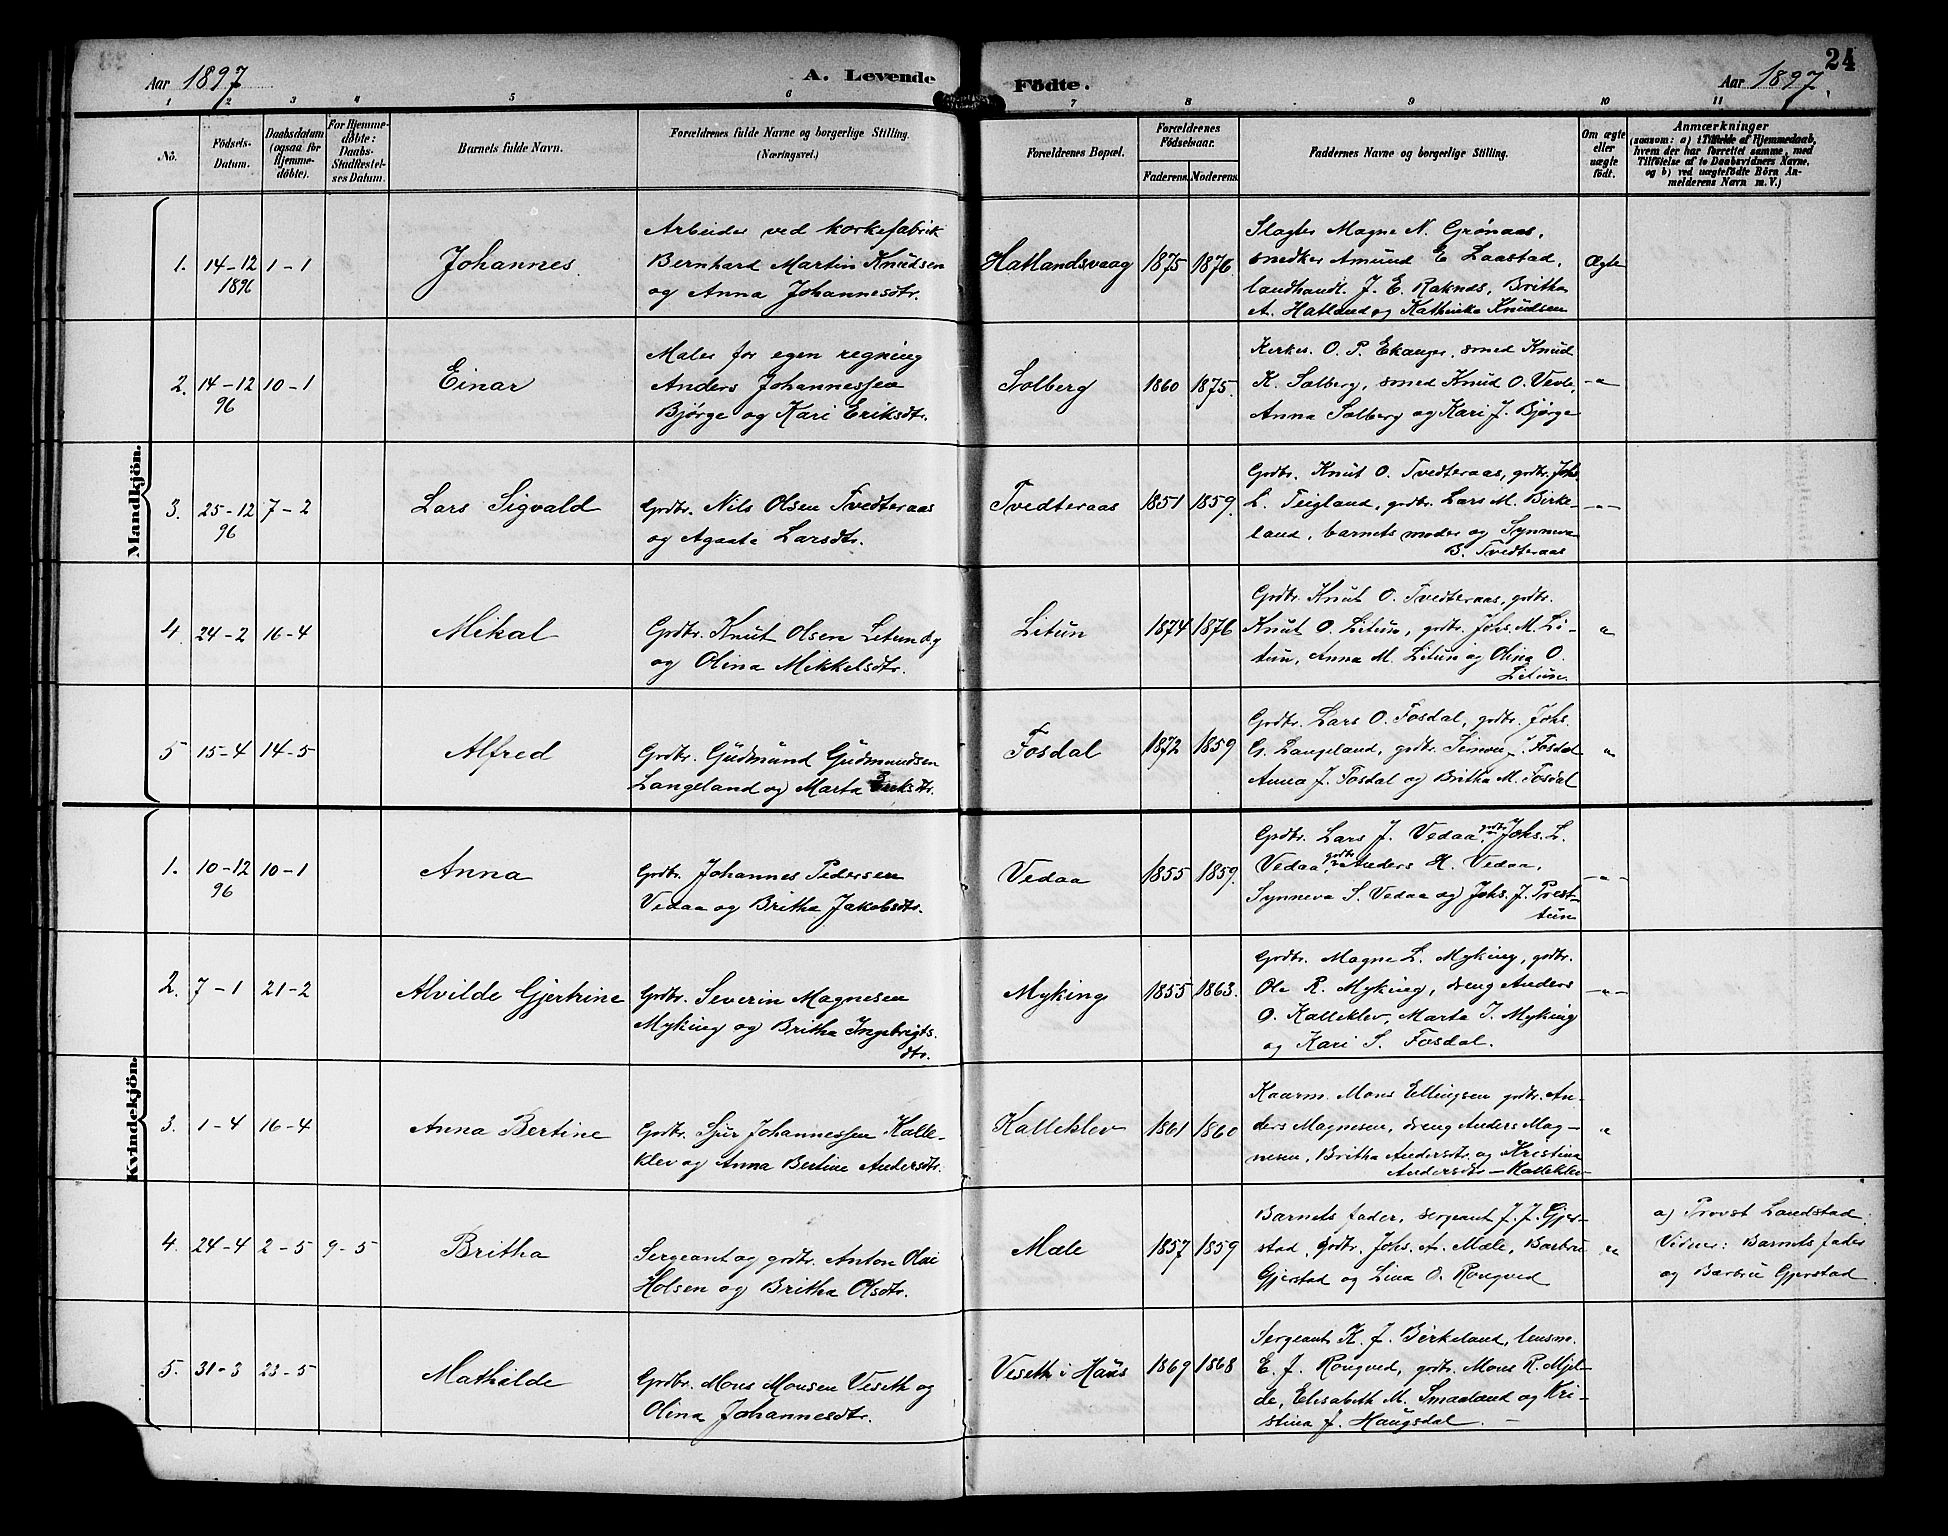 24
Aar 1897
A. Levende
Fødte.
Aar 1897.
1 2 3 4 5 6 7 8 9 10 11
No.
Fødsels-
Datum.
Daabsdatum
(ogsaa for
Hjemme-
døbte).
For Hjemme-
døbte:
Daabs-
Stadfæstel-
ses Datum.
Barnets fulde Navn.
Forældrenes fulde Navne og borgerlige Stilling.
(Næringsvei.)
Forældrenes Bopæl.
Forældrenes
Fødselsaar.
Faderens. Moderens.
Faddernes Navne og borgerlige Stilling.
Om ægte
eller
uægte
født.
Anmærkninger
(saasom: a) i Tilfælde af Hjemmedaab,
hvem der har forrettet samme, med
Tilføielse af to Daabsvidners Navne,
og b) ved uægtefødte Børn An-
melderens Navn m. V.)
Mandkjön.
1. 14-12 1-1
1896
Johannes.
Arbeider ved korkefabrik
Bernhard Martin Knudsen
og Anna Johannesdtr.
Hatlandsvaag 1875 1876.
Slagter Magne N. Grønaas,
snedker Amund E. Laastad,
landhandl. J. E. Raknes, Britha
A. Hatland og Kathinka Knudsen
Ægte
2. 14-12 10-1
96
Einar
Maler for egen regning
Anders Johannessen
Bjørge og Kari Eriksdtr.
Solberg 1860 1875.
Kirkes. O. P. Ekanger, smed Knud
K. Solberg, smed Knud O. Vevle,
Anna Solberg og Kari J. Bjørge
-"
3. 25-12 7-2
96
Lars Sigvald
Grdbr. Nils Olsen Tvedteraas
og Agaata Larsdtr.
Tvedteraas 1851 1859.
Grdbr. Knut O. Tvedteraas, grdbr. Johs
L. Teigland, grdbr. Lars M. Birke-
land, barnets moder og Synneva
B. Tvedteraas
-"-
4. 24-2 16-4
Mikal
Grdbr. Knut Olsen Litun
og Olina Mikkelsdtr.
Litun 1874 1876
Grdbr. Knut O. Tvedteraas, grdbr.
Knut O. Litun, grdbr. Johs. M. Li-
tun, Anna M. Litun og Olina O.
Litun.
"
5 15-4 14-5
Alfred
Grdbr. Gudmund Gudmundsen
Langeland og Marta Eriksdtr.
Fosdal 1872 1859
Grdbr. Lars O. Fosdal, grdbr. Johs.
G. Langeland, grdbr. Simon J. Fosdal
Anna J. Fosdal og Britha M. Fosdal
"
Kvindekjön.
1. 10-12 10-1
96
Anna
Grdbr. Johannes Pedersen
Vedaa og Britha Jakobsdtr.
Vedaa 1855 1859.
Grdbr. Lars J. Vedaa, grdbr. Johs. L.
Vedaa, grdbr. Anders H. Vedaa,
Synneva S. Vedaa og Johs. J. Prest-
tun
-"-
2. 7-1 21-2
Alvilde Gjertrine
Grdbr. Severin Magnesen
Myking og Britha Ingebrigts-
dtr.
Myking 1855 1863.
Grdbr. Magne L. Myking, grdbr.
Ole R. Myking, dreng Anders
O. Kalleklev, Marta I. Myking
og Kari S. Fosdal.
-"-
3. 1-4 16-4
Anna Bertine
Grdbr. Sjur Johannessen Kalle-
klev og Anna Bertine Andersdtr.
Kalleklev 1861 1860
Kaarm. Mons Ellingsen grdbr. An-
ders Magnesen, dreng Anders Mag-
nesen, Britha Andersdtr. og Kristina
Andersdtr - Kalleklev
"
4. 24-4 2-5 9-5
Britha
Sergeant og grdbr. Anton Olai
Holsen og Britha Olsdtr.
Mæle 1857 1859
Barnets fader, sergeant J. J. Gjer-
stad, grdbr. Johs. A. Mæle, Barbru
Gjerstad og Lina O. Rongved
"
a) Provst Landstad
Vidner: Barnets fader
og Barbru Gjerstad.
5. 31-3 23-5
Mathilde
Grdbr. Mons Monsen Veseth og
Olina Johannesdtr.
Veseth i Haus 1869 1868
Sergeant K. J. Birkeland, lensm.
E. J. Rongved, grdbr. Mons R. Mjel-
de, Elisabeth M. Smaaland og Kri-
stina J. Haugsdal. -